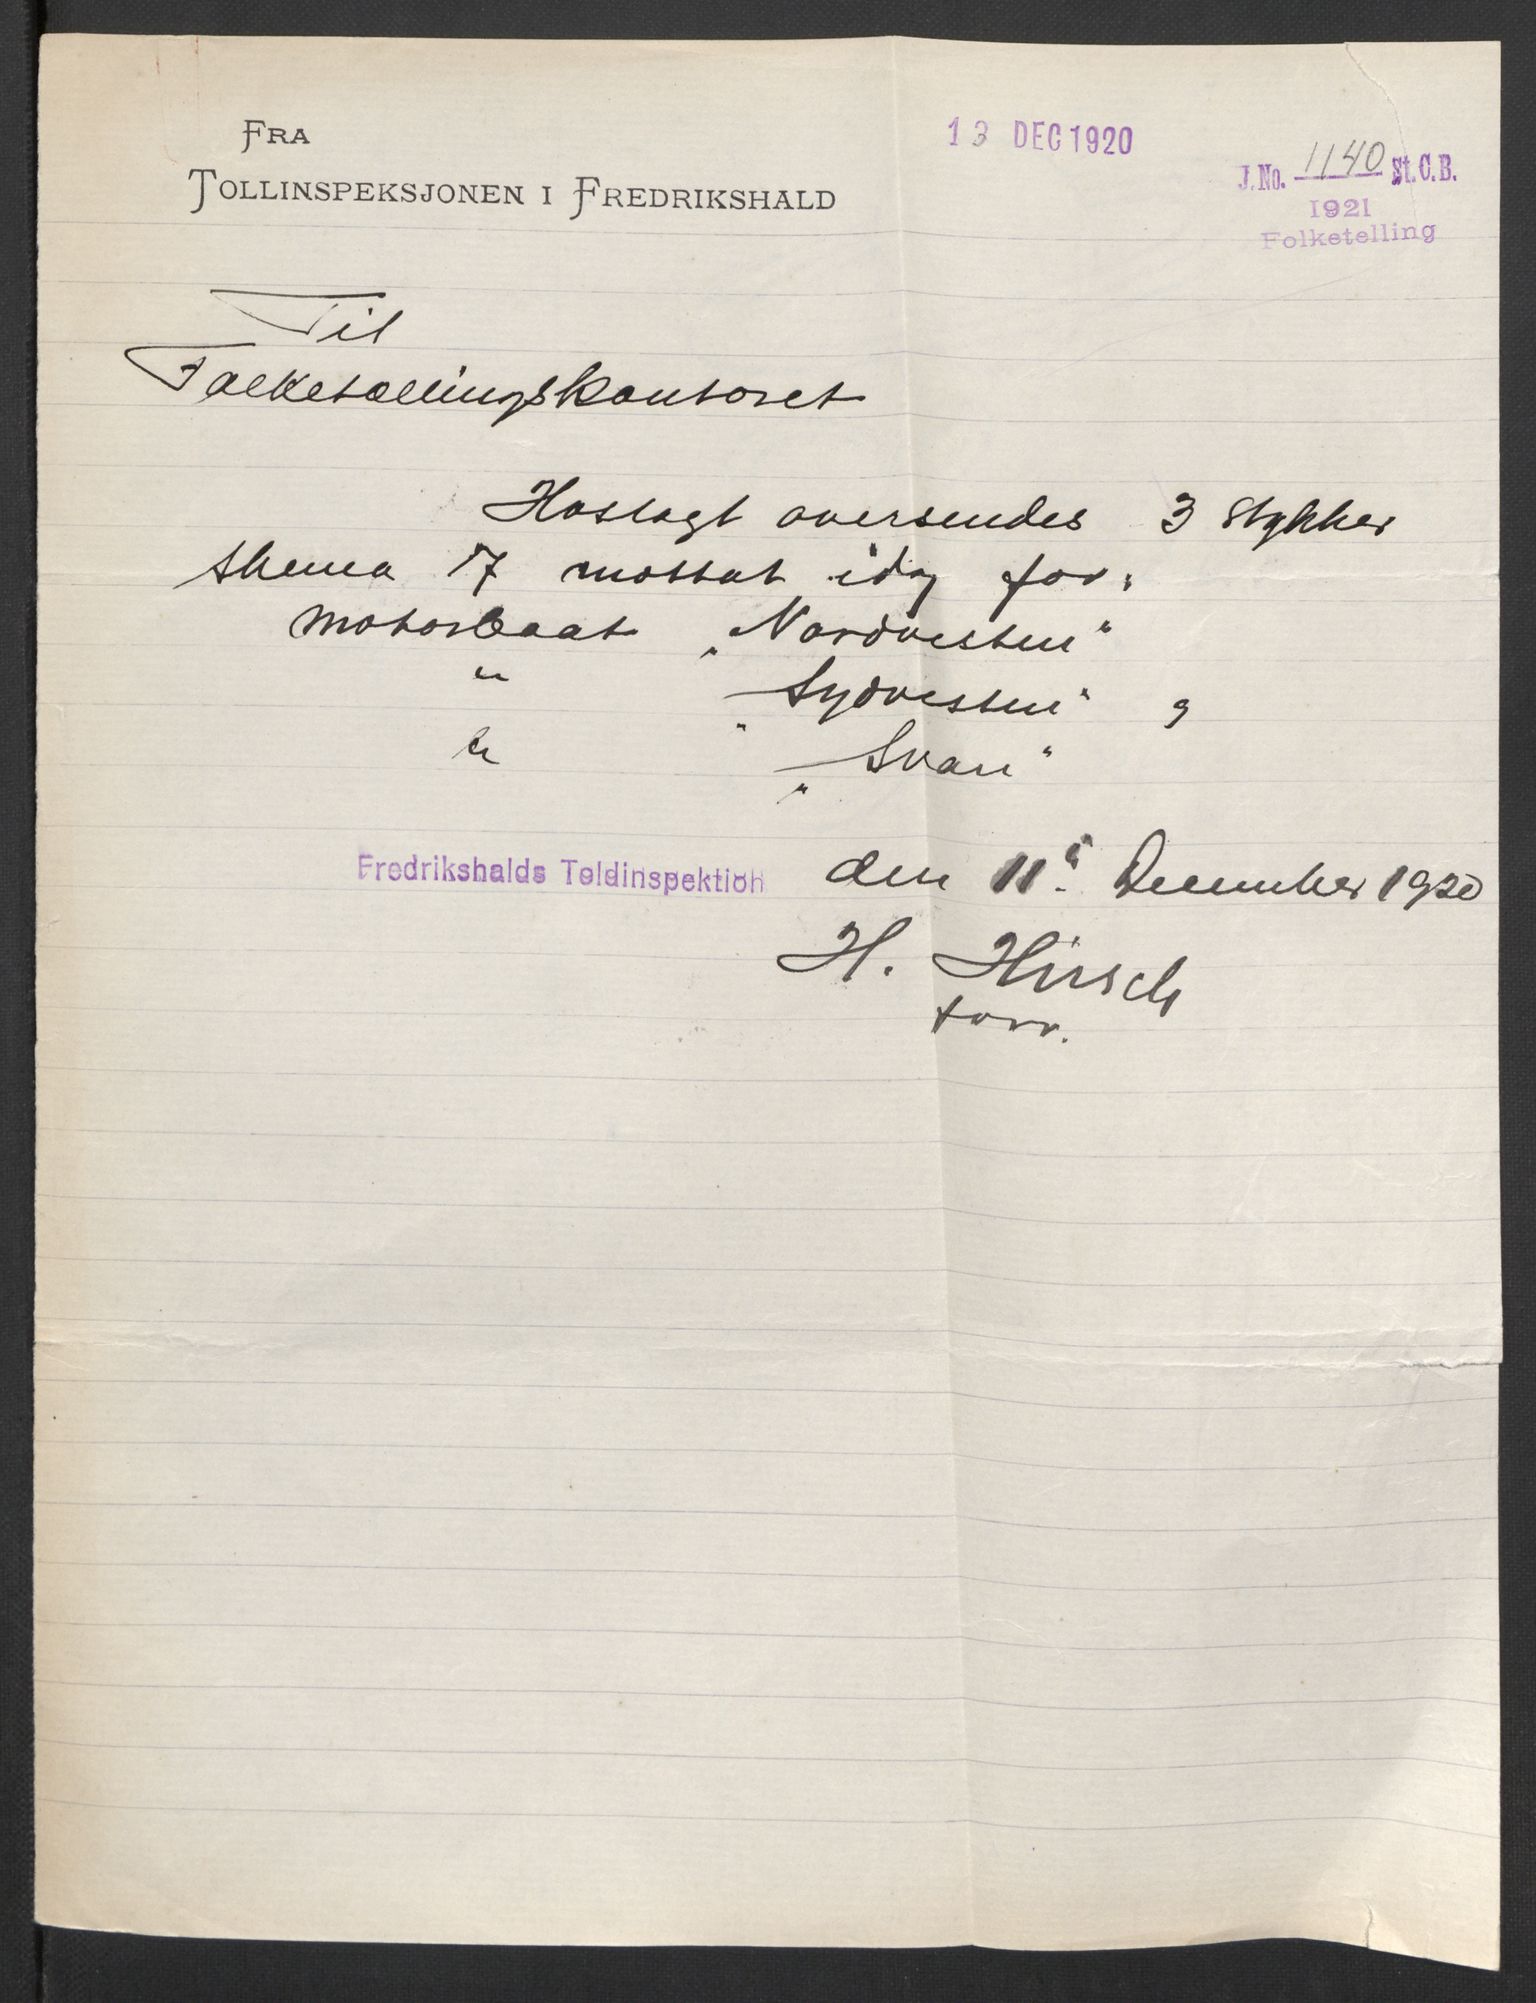 FRA
TOLLINSPEKSJONEN I FREDRIKSHALD
13 DEC 1920
J. No. 1140 St. C. B.
1921
Folketelling
Til
Folketællingskontoret
Hoslagt oversendes 3 stykker
skema 17 mottat idag for:
motorbaat „Nordvesten"
" „Sydvesten" og
" „Svan"
Fredrikshalds Toldinspektion den 11te December 1920
H. Hirsch